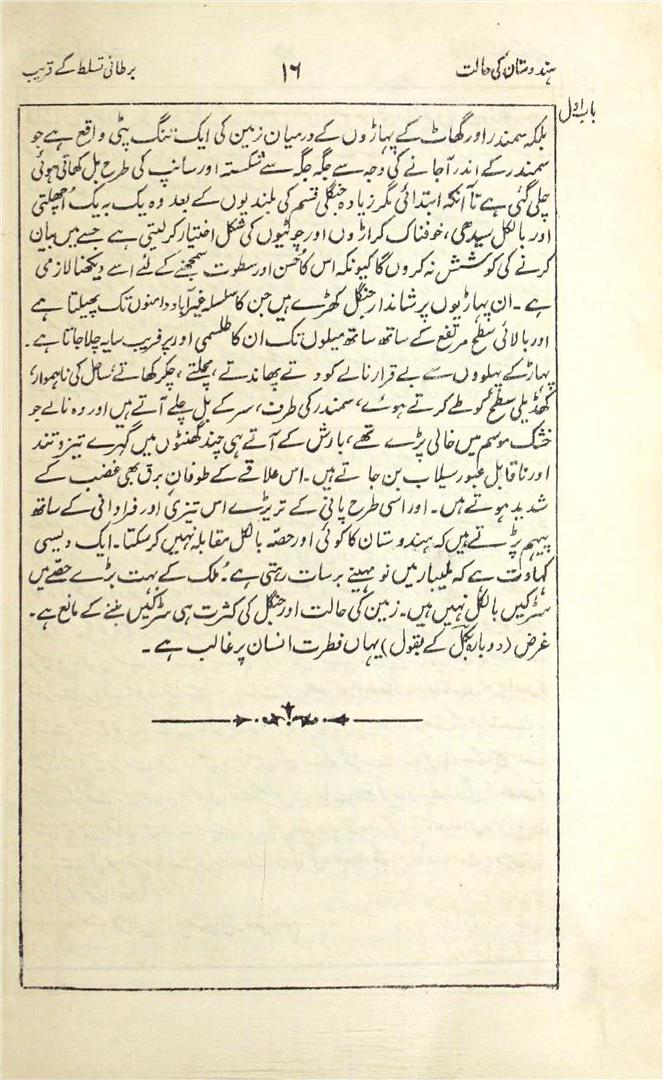 ہندوستان کی حالت ۱۶ برطانی تسلط کے قریب
باب اول
بلکہ سمندر اور گھاٹ کے پہاڑوں کے درمیان زمین کی ایک تنگ پٹی واقع ہے جو
سمندر کے اندر آجانے کی وجہ سے جگہ جگہ سے شکستہ اور سانپ کی طرح بل کھاتی ہوئی
چلی گئی ہے تا آنکہ ابتدائی مگر زیادہ جنگلی قسم کی بلندیوں کے بعد وہ یک بہ یک اُچھلتی
اور بالکل سیدھی، خوفناک کراڑوں اور چوٹیوں کی شکل اختیار کرلیتی ہے جسے میں بیان
کرنے کی کوشش نہ کروں گا کیونکہ اس کا حُسن اور سطوت سمجھنے کے لئے اسے دیکھنا لازمی
ہے۔ ان پہاڑیوں پر شاندار جنگل کھڑے ہیں جن کا سلسلہ غیر آباد دامنوں تک پھیلتا ہے
اور بالائی سطح مرتفع کے ساتھ ساتھ میلوں تک ان کا طلسمی اور پر فریب سایہ چلا جاتا ہے۔
پہاڑ کے پہلووں سے بے قرار نالے کودتے پھاندتے، مچلتے، چکر کھاتے ساحل کی ناہموار،
کھڈیلی سطح کو طے کرتے ہوئے، سمندر کی طرف، سر کے بل چلے آتے ہیں اور وہ نالے جو
خشک موسم میں خالی پڑے تھے، بارش کے آتے ہی چند گھنٹوں میں گہرے تیز و تند
اور ناقابل عبور سیلاب بن جاتے ہیں۔ اس علاقے کے طوفان برق بھی غضب کے
شدید ہوتے ہیں۔ اور اسی طرح پانی کے تریڑے اس تیزی اور فراوانی کے ساتھ
پیہم پڑتے ہیں کہ ہندوستان کا کوئی اور حصّہ بالکل مقابلہ نہیں کرسکتا۔ ایک دیسی
کہاوت ہے کہ ملیبار میں نو مہینے برسات رہتی ہے۔ ملک کے بہت بڑے حصّے میں
سڑکیں بالکل نہیں ہیں۔ زمین کی حالت اور جنگل کی کثرت ہی سڑکیں بننے کے مانع ہے۔
غرض (دوبارہ بکل کے بقول) یہاں فطرت انسان پر غالب ہے۔